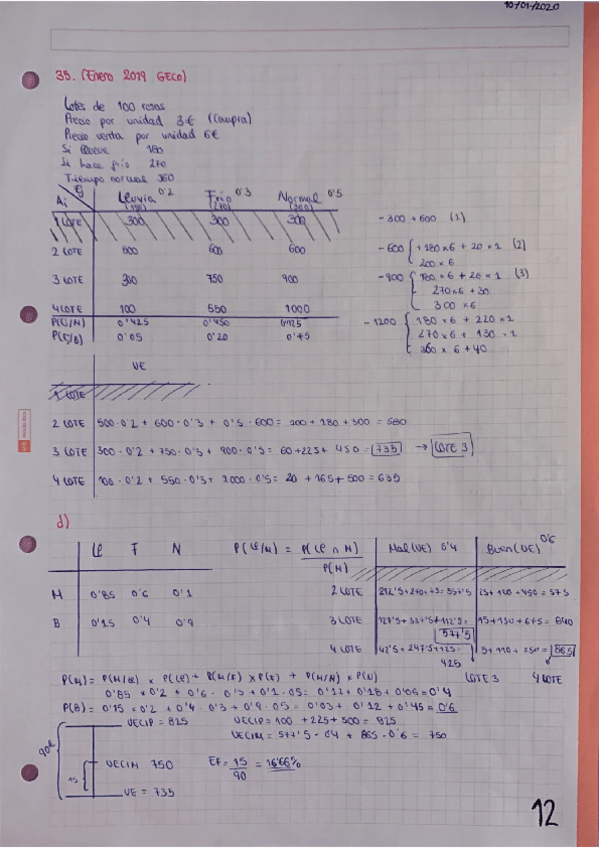 10/01/2020
35. (Enero 2019 GECO)
Lotes de 100 rosas
Precio por unidad 3€ (Compra)
Precio venta por unidad 6€
Si llueve 180
Si hace frío 270
Tiempo normal 360
Ai Ej Lluvia 0'2 (180) Frío 0'3 (270) Normal 0'5 (360)
1 LOTE 300 300 300 -300 + 600 (1)
2 LOTE 500 600 600 -600 { +180×6 + 20×1 (2)
200×6
3 LOTE 300 750 900 -900 { 180×6 + 20×1 (3)
270×6 + 30
300×6
4 LOTE 100 550 1000 -1200 { 180×6 + 220×1
P(Ej/M) 0'425 0'450 0'125 270×6 + 130×1
P(Ej/B) 0'05 0'20 0'75 360×6 + 40
VE
1 LOTE
2 LOTE 500·0'2 + 600·0'3 + 0'5·600 = 100 + 180 + 300 = 580
3 LOTE 300·0'2 + 750·0'3 + 900·0'5 = 60 + 225 + 450 = 735 → LOTE 3
4 LOTE 100·0'2 + 550·0'3 + 1000·0'5 = 20 + 165 + 500 = 635
d)
Ll F N P(Ll/M) = P(Ll ∩ M) / P(M) Mal (VE) 0'4 Buen (VE) 0'6
M 0'85 0'6 0'1 2 LOTE 212'5+270+75 = 557'5 25+120+450 = 575
B 0'15 0'4 0'9 3 LOTE 127'5+337'5+112'5 = 577'5 15+150+675 = 840
4 LOTE 42'5+247'5+125 = 425 5+110+750 = 865
LOTE 3 4 LOTE
P(M) = P(M/Ll) × P(Ll) + P(M/F) × P(F) + P(M/N) × P(N)
0'85 × 0'2 + 0'6 · 0'3 + 0'1 · 0'5 = 0'17 + 0'18 + 0'05 = 0'4
P(B) = 0'15 × 0'2 + 0'4 · 0'3 + 0'9 · 0'5 = 0'03 + 0'12 + 0'45 = 0'6
VECIP = 825 VECIP = 100 + 225 + 500 = 825
VECIM = 577'5 · 0'4 + 865 · 0'6 = 750
90€
15
VECIM 750 EF = 15/90 = 16'66%
VE = 735
12